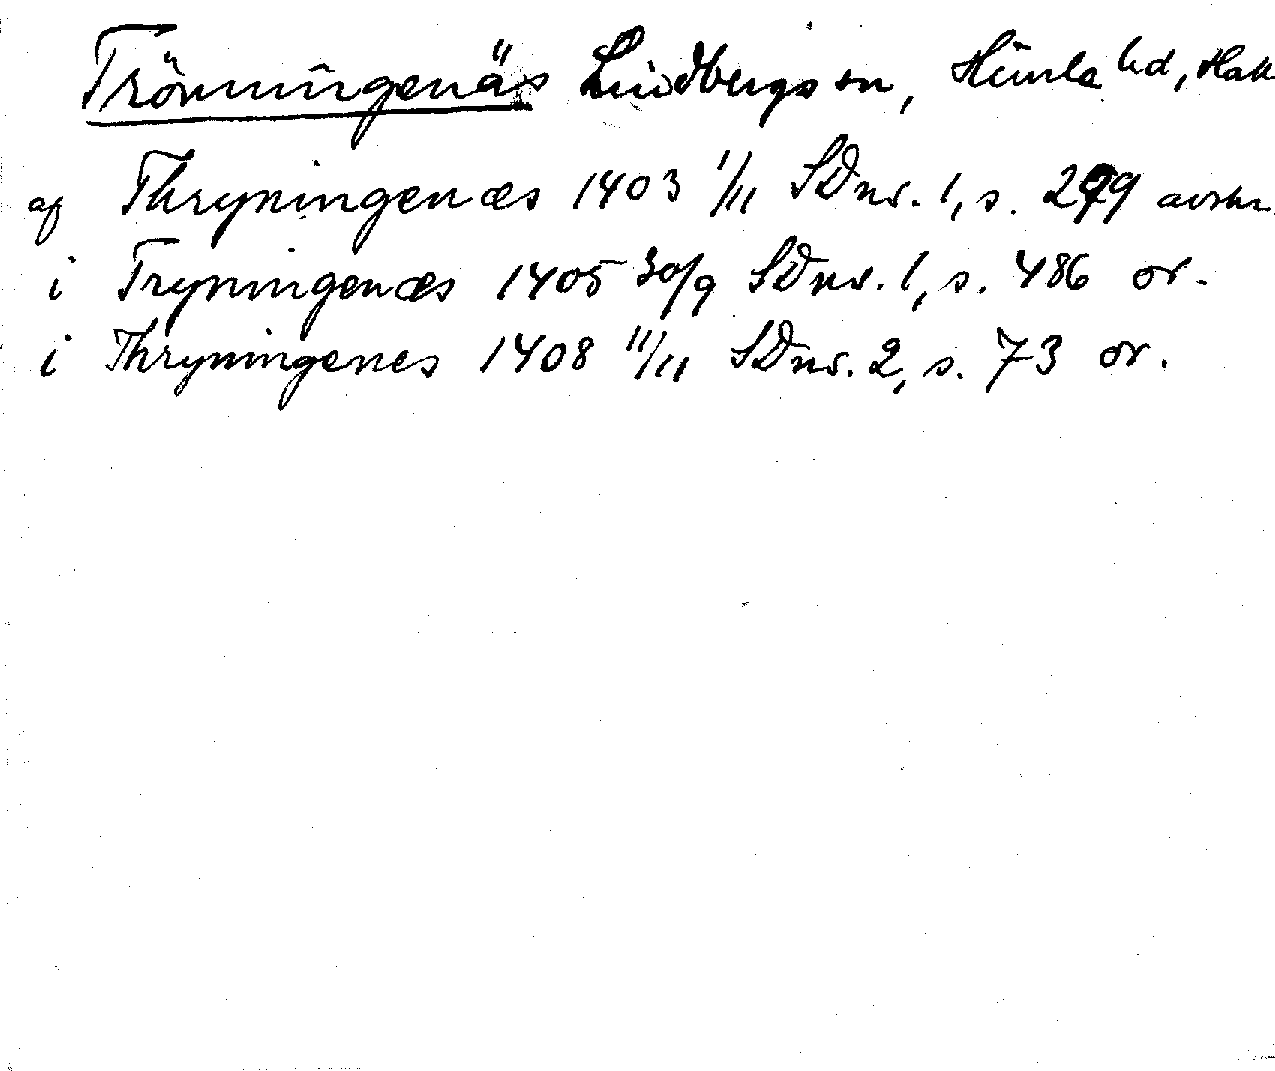 Trönningenäs Lindbergs sn, Himle hd, Hall
af Thryningenæs 1403 1/11 SDns. 1, s. 299 avskr.
i Tryningenæs 1405 30/9 SDns. 1, s. 486 or.
i Thryningenes 1408 11/11 SDns. 2, s. 73 or.